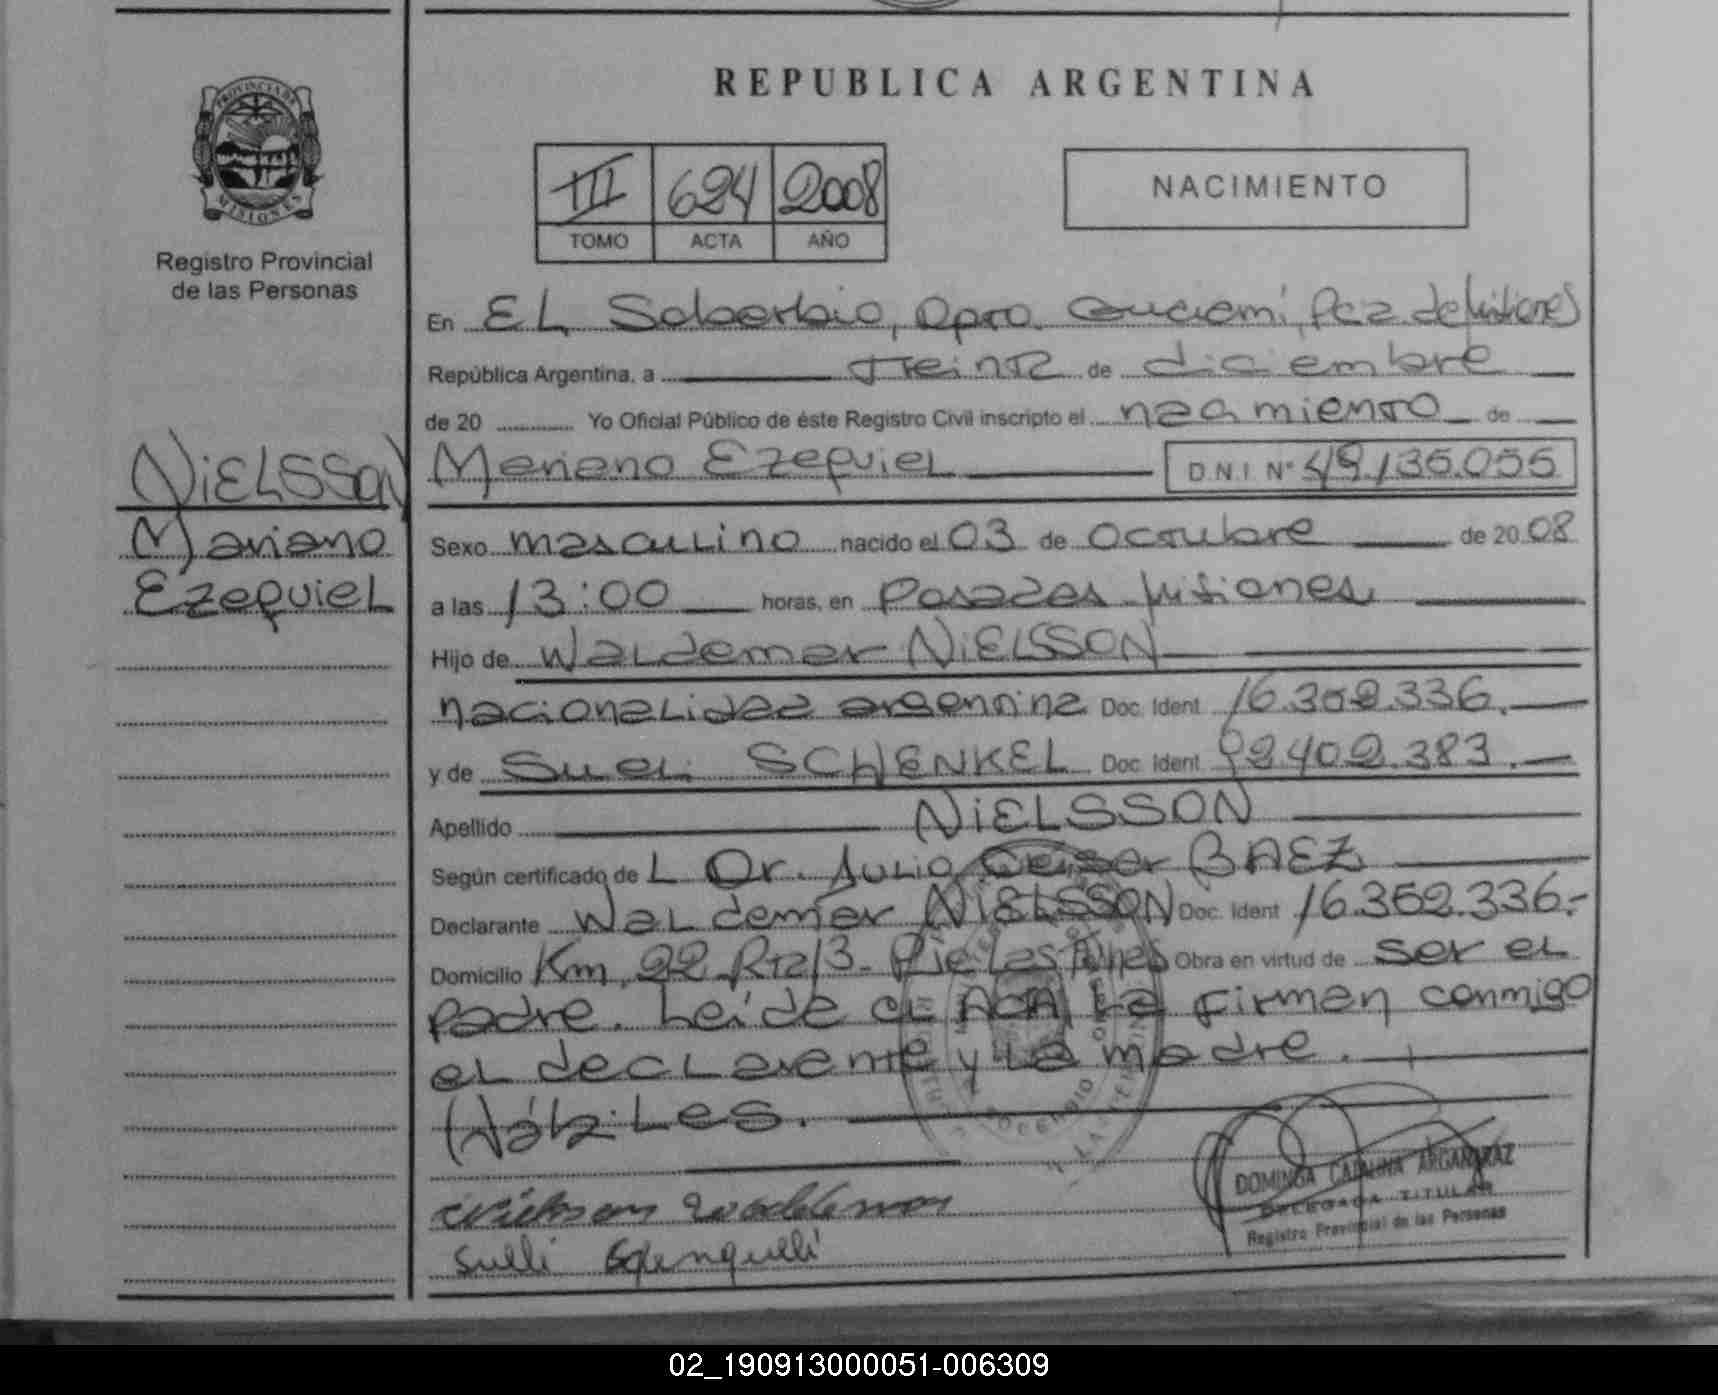 REPUBLICA ARGENTINA
PROVINCIA DE
MISIONES
Registro Provincial
de las Personas
III 624 2008
TOMO ACTA AÑO
NACIMIENTO
En EL Soberbio, Dpto. Guaraní, Pcia. de Misiones
República Argentina, a treinta de diciembre
de 20 ............ Yo Oficial Público de éste Registro Civil inscripto el nacimiento de
NiELSSON
Mariano
EzequieL
Mariano EzequieL D.N.I. Nº 49.135.055
Sexo mascuLino nacido el 03 de octubre de 2008
a las 13:00 horas, en Posadas Misiones
Hijo de WaLdemar NiELSSON
nacionaLidad argentina Doc. Ident 16.362.336.
y de SueLi SCHENKEL Doc. Ident 92.402.383.
Apellido NiELSSON
Según certificado de L Dr. JuLio Cesar BAEZ
Declarante WaLdemar NiELSSON Doc. Ident 16.362.336.-
Domicilio Km, 22 Rta/3- Obra en virtud de ser eL
padre. Leída eL ACTA La firman conmigo
eL decLarante y La madre.
HábiLes.
DOMINGA CATALINA ARGAÑARAZ
DELEGADA TITULAR
Registro Provincial de las Personas
02_190913000051-006309